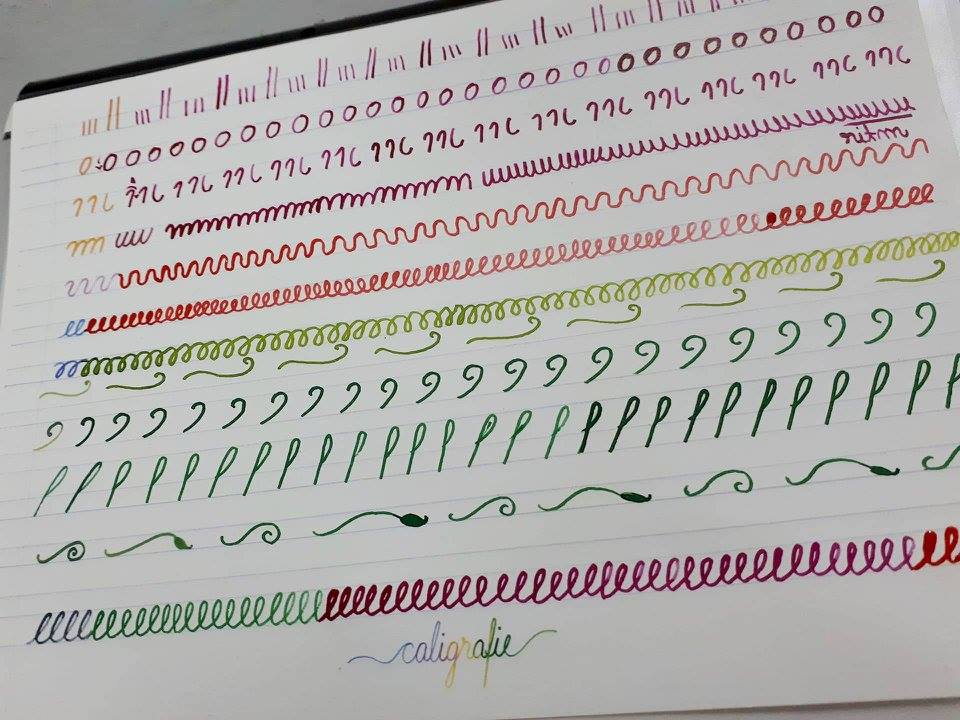 ritm
caligrafie